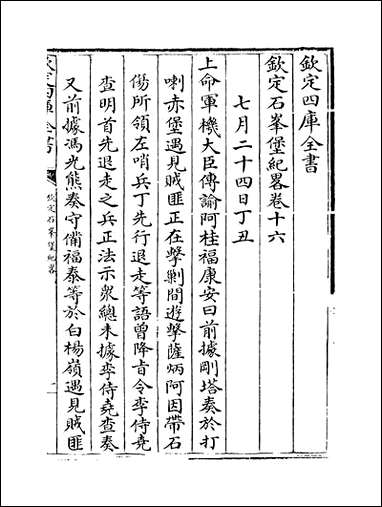 欽定四庫全書
欽定石峯堡紀畧卷十六
七月二十四日丁丑
上命軍機大臣傳諭阿桂福康安曰前據剛塔奏於打
喇赤堡遇見賊匪正在擊剿間遊擊薩炳阿因帶石
傷所領左哨兵丁先行退走等語曾降旨令李侍堯
查明首先退走之兵正法示衆總未據李侍堯查奏
又前據馮光熊奏守備福泰等於白楊嶺遇見賊匪
欽定四庫全書
欽定石峯堡紀畧
一